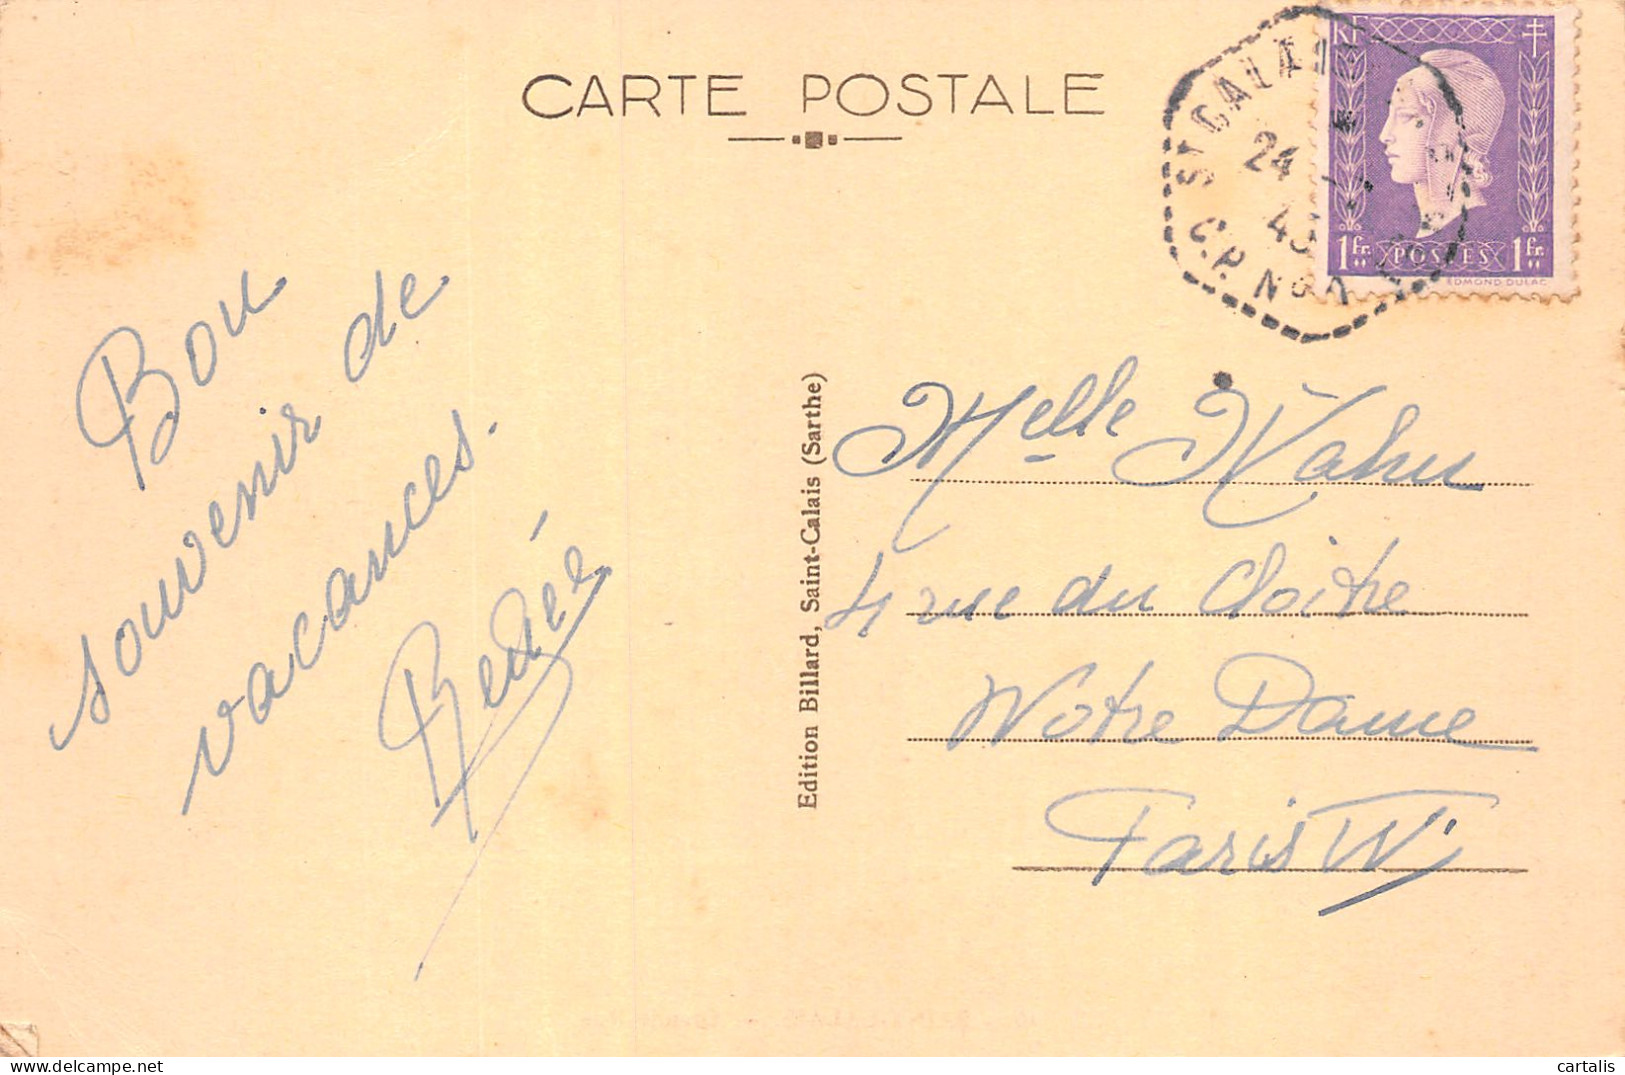 CARTE POSTALE
ST CALAIS
24
45
C.P. N°
RF
1fr. POSTES 1fr.
EDMOND DULAC
Bon
souvenir de
vacances.
Edition Billard, Saint-Calais (Sarthe)
Melle Kahn
4 rue du Cloître
Notre Dame
Paris IV
cartalis